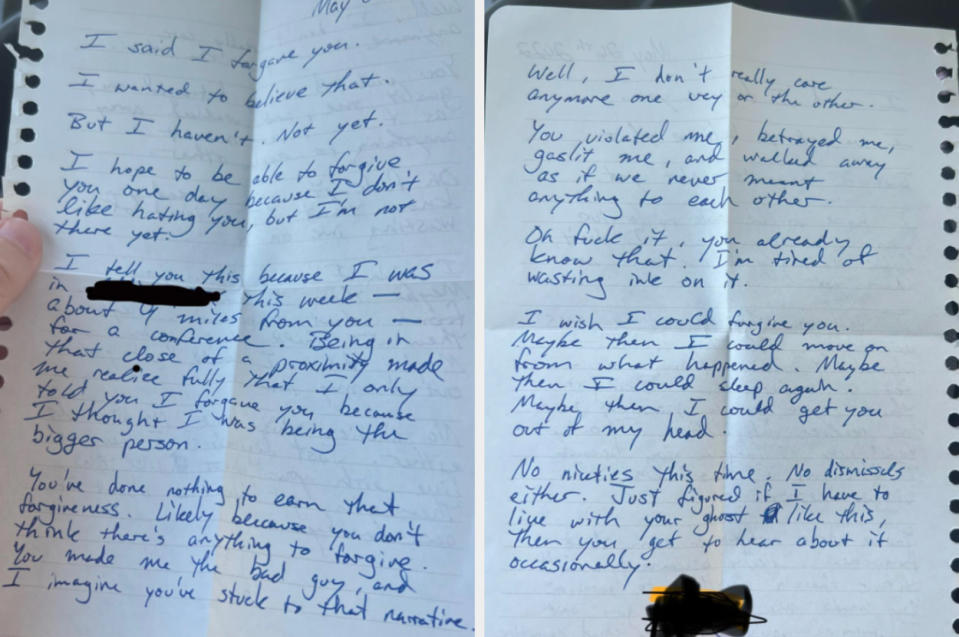 May
I said I forgave you.
I wanted to believe that.
But I haven't. Not yet.
I hope to be able to forgive
you one day because I don't
like hating you, but I'm not
there yet.
I tell you this because I was
in this week —
about 4 miles from you —
for a conference. Being in
that close of a proximity made
me realize fully that I only
told you I forgave you because
I thought I was being the
bigger person.
You've done nothing to earn that
forgiveness. Likely because you don't
think there's anything to forgive.
You made me the bad guy, and
I imagine you've stuck to that narrative.
Well, I don't really care
anymore one way or the other.
You violated me, betrayed me,
gaslit me, and walked away
as if we never meant
anything to each other.
Oh fuck it, you already
know that. I'm tired of
wasting ink on it.
I wish I could forgive you.
Maybe then I could move on
from what happened. Maybe
then I could sleep again.
Maybe then I could get you
out of my head.
No niceties this time. No dismissals
either. Just figured if I have to
live with your ghost like this,
then you get to hear about it
occasionally.